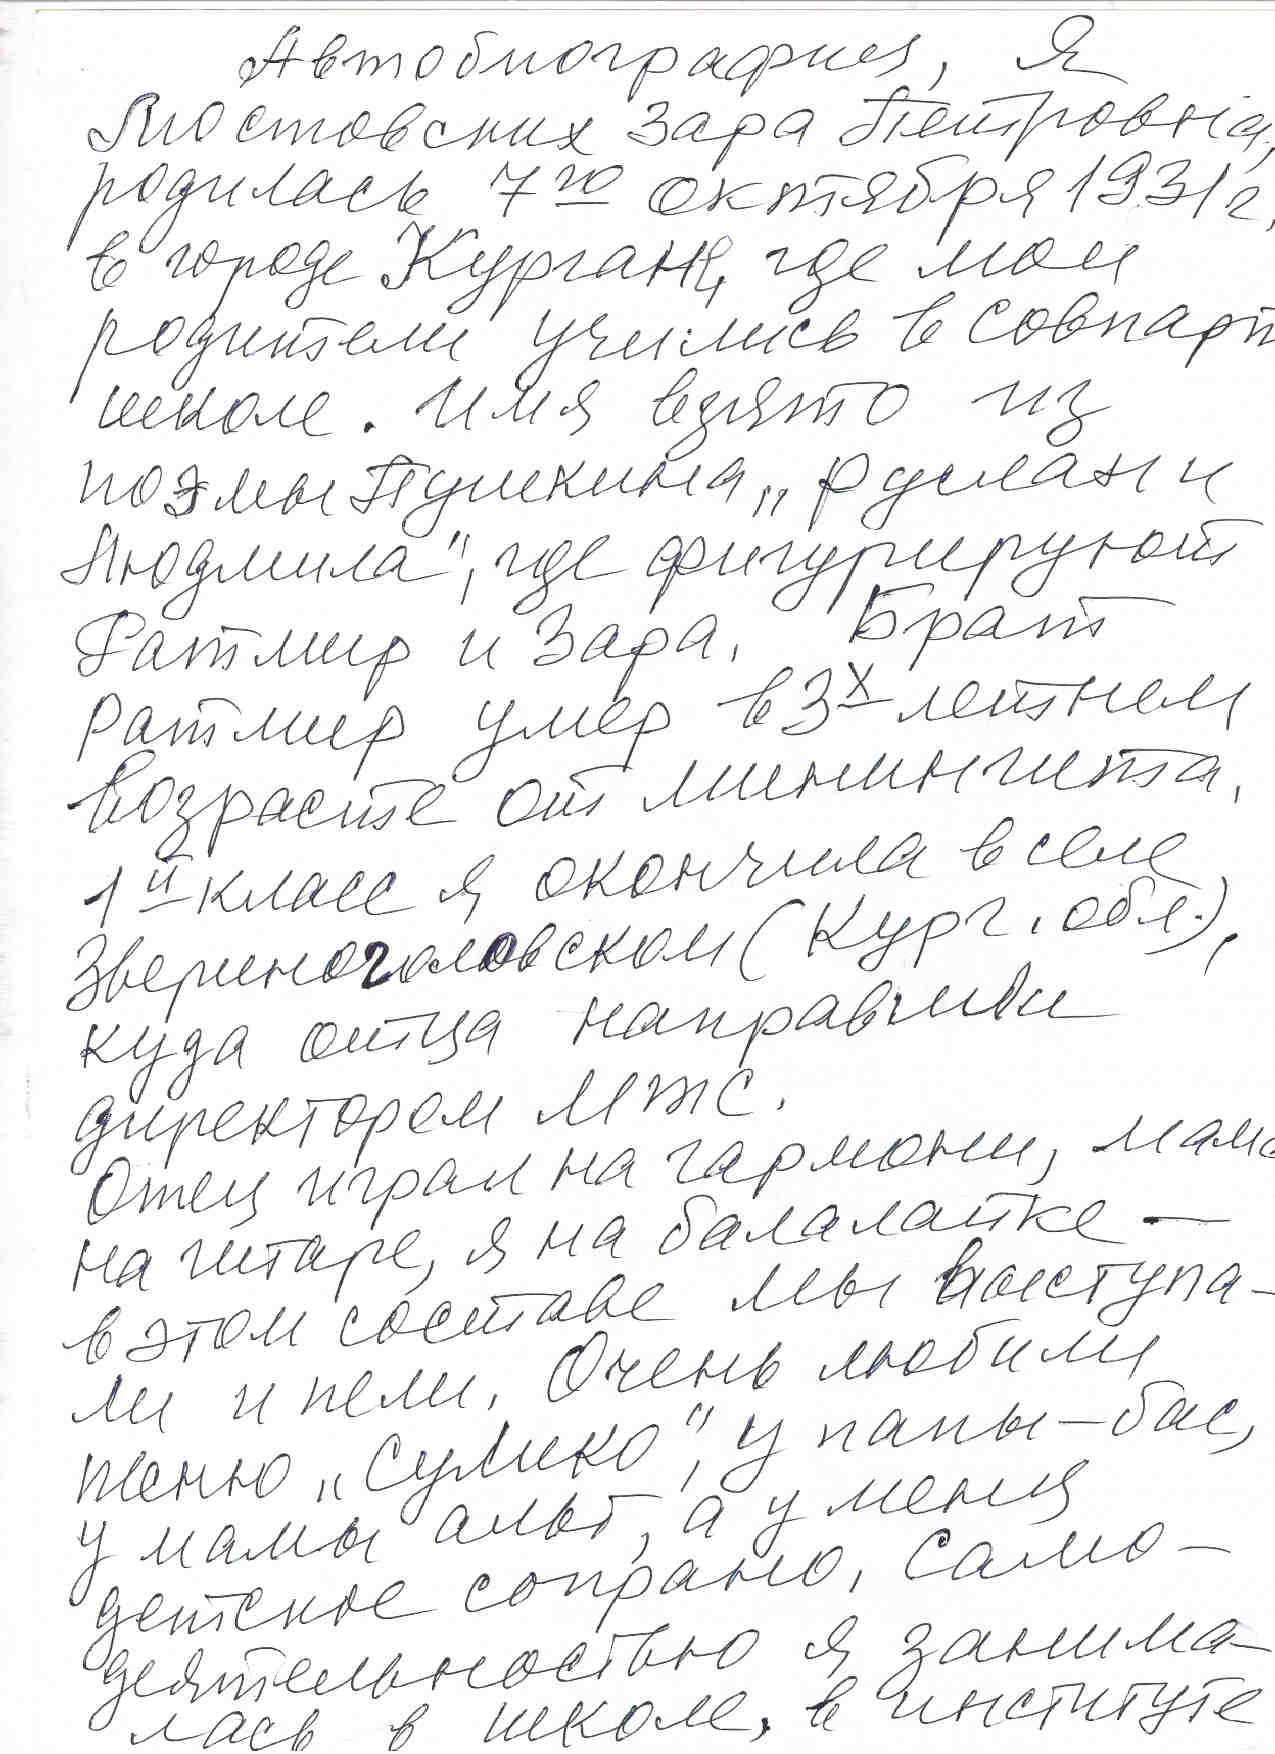 Автобиография, Я
Мостовских Зара Петровна,
родилась 7го октября 1931г.
в городе Кургане, где мои
родители учились в совпарт
школе. Имя взято из
поэмы Пушкина „Руслан и
Людмила", где фигурируют
Ратмир и Зара. Брат
Ратмир умер в 3х летнем
возрасте от минингита.
1й класс я окончила в селе
Звериноголовском (Кург. обл.),
куда отца направили
директором МЖС.
Отец играл на гармони, мама
на гитаре, я на балалайке —
в этом составе мы выступа-
ли и пели. Очень любили
песню „Сулико", у папы – бас,
у мамы альт, а у меня
детское сопрано. Само-
деятельностью я занима-
лась в школе, в институте